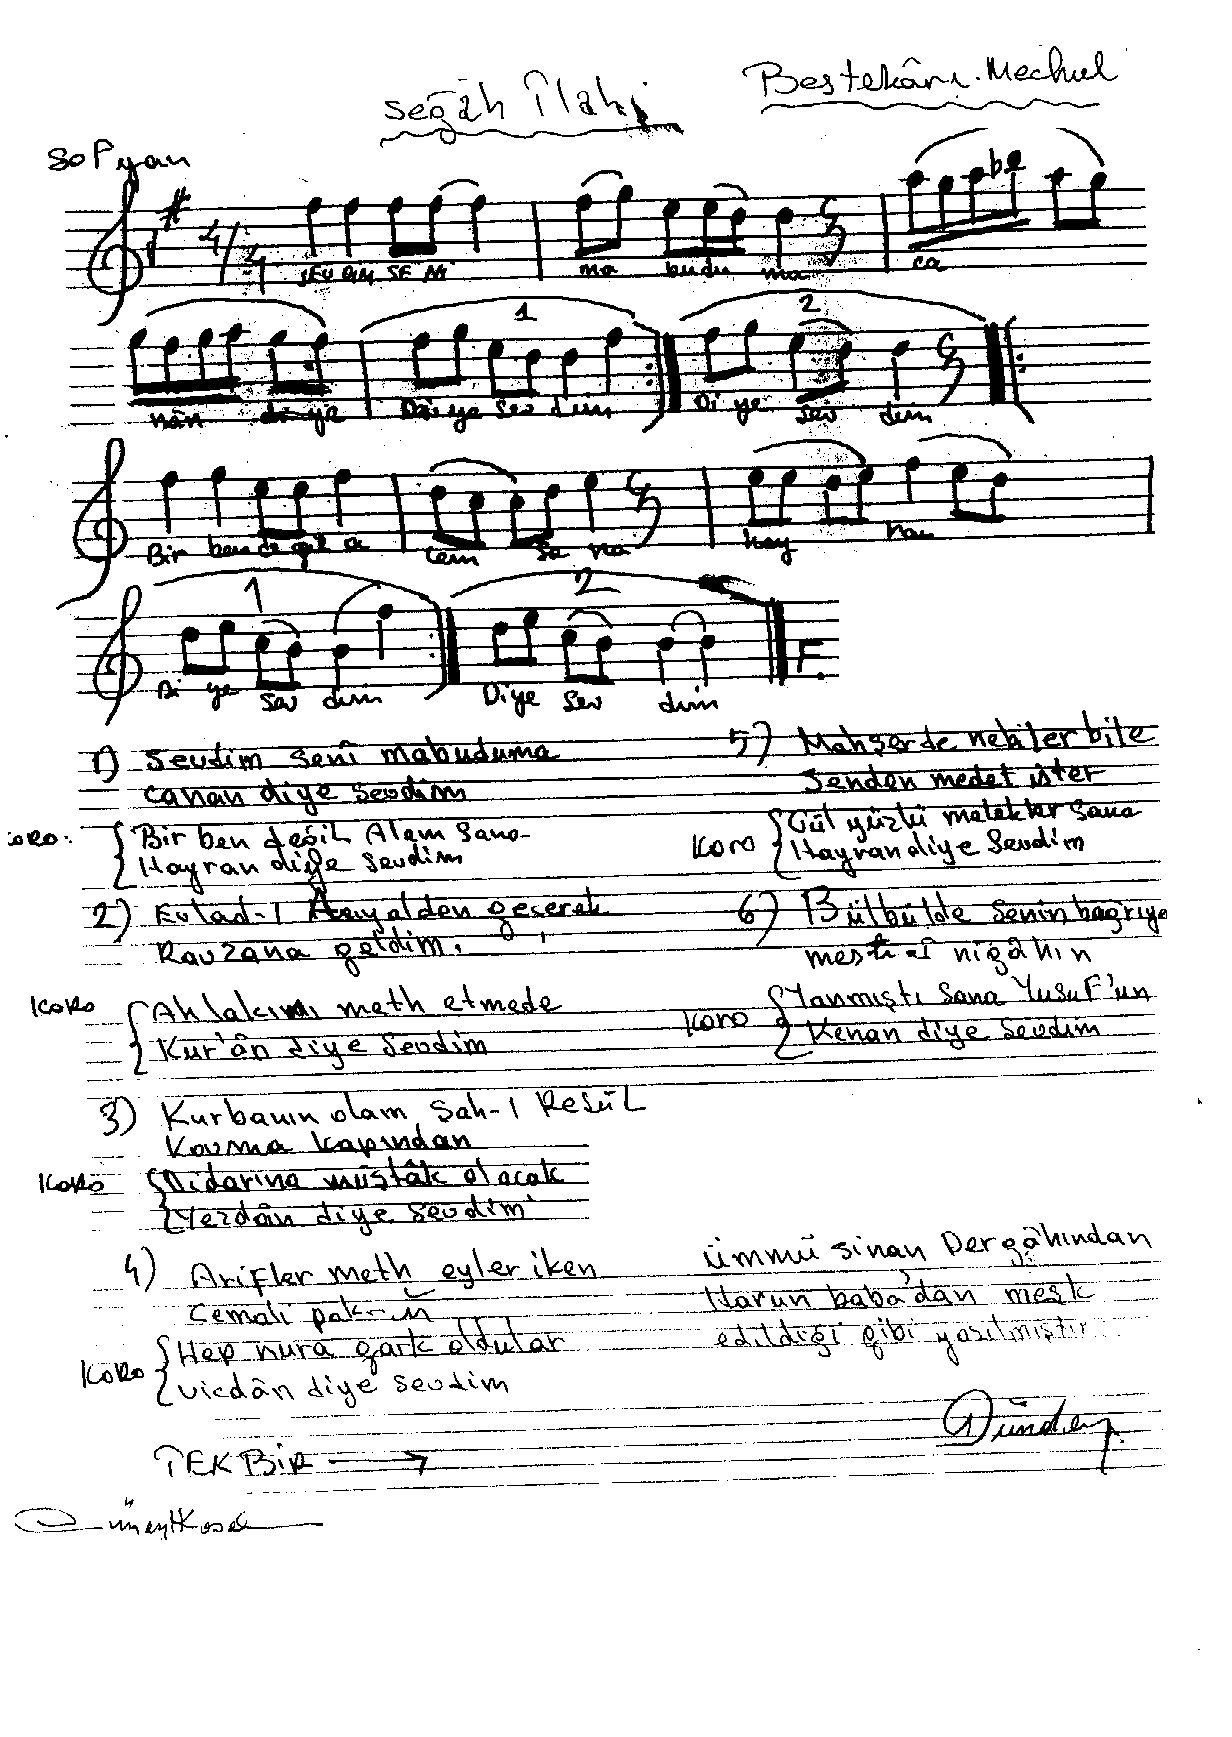 Segâh İlahi
Bestekârı: Mechul
Sofyan
4/4
SEV DİM SE Nİ ma budu ma ca
1 2
nân di ye Di ye sev dim Di ye sev dim
Bir ben de ğil a lem sa na hay ran
1 2
Di ye sev dim Diye sev dim
F.
1) Sevdim seni mabuduma
canan diye sevdim
KORO: Bir ben değil Alem sana
Hayran diye sevdim
2) Evlad-ı geçerek
Ravzana geldim.
KORO Ahlakını meth etmede
Kur'ân diye sevdim
3) Kurbanın olam Şah-ı Resûl
Kovma kapından
KORO Didarına müştâk olacak
Yezdân diye sevdim
4) Arifler meth eyler iken
Cemali pak-ın
KORO Hep nura gark oldular
vicdân diye sevdim
TEKBİR →
5) Mahşerde nebiler bile
Senden medet ister
KORO Gül yüzlü melekler sana
Hayran diye sevdim
6) Bülbülde senin bağrıya
mest-i nigâhın
KORO Yanmıştı sana Yusuf'un
Kenan diye sevdim
Ümmü Sinan Dergâhından
Harun baba'dan meşk
edildiği gibi yazılmıştır